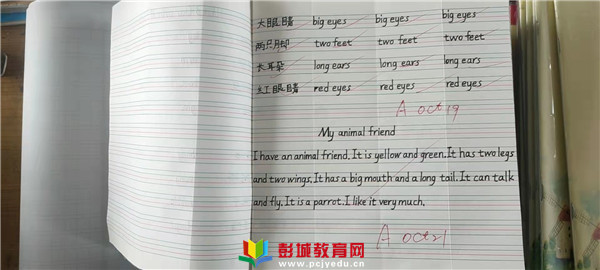 大眼睛 big eyes big eyes big eyes
两只脚 two feet two feet two feet
长耳朵 long ears long ears long ears
红眼睛 red eyes red eyes red eyes
A oct 19
My animal friend
I have an animal friend. It is yellow and green. It has two legs
and two wings. It has a big mouth and a long tail. It can talk
and fly. It is a parrot. I like it very much.
A oct 21
彭城教育网
www.pcjyedu.cn